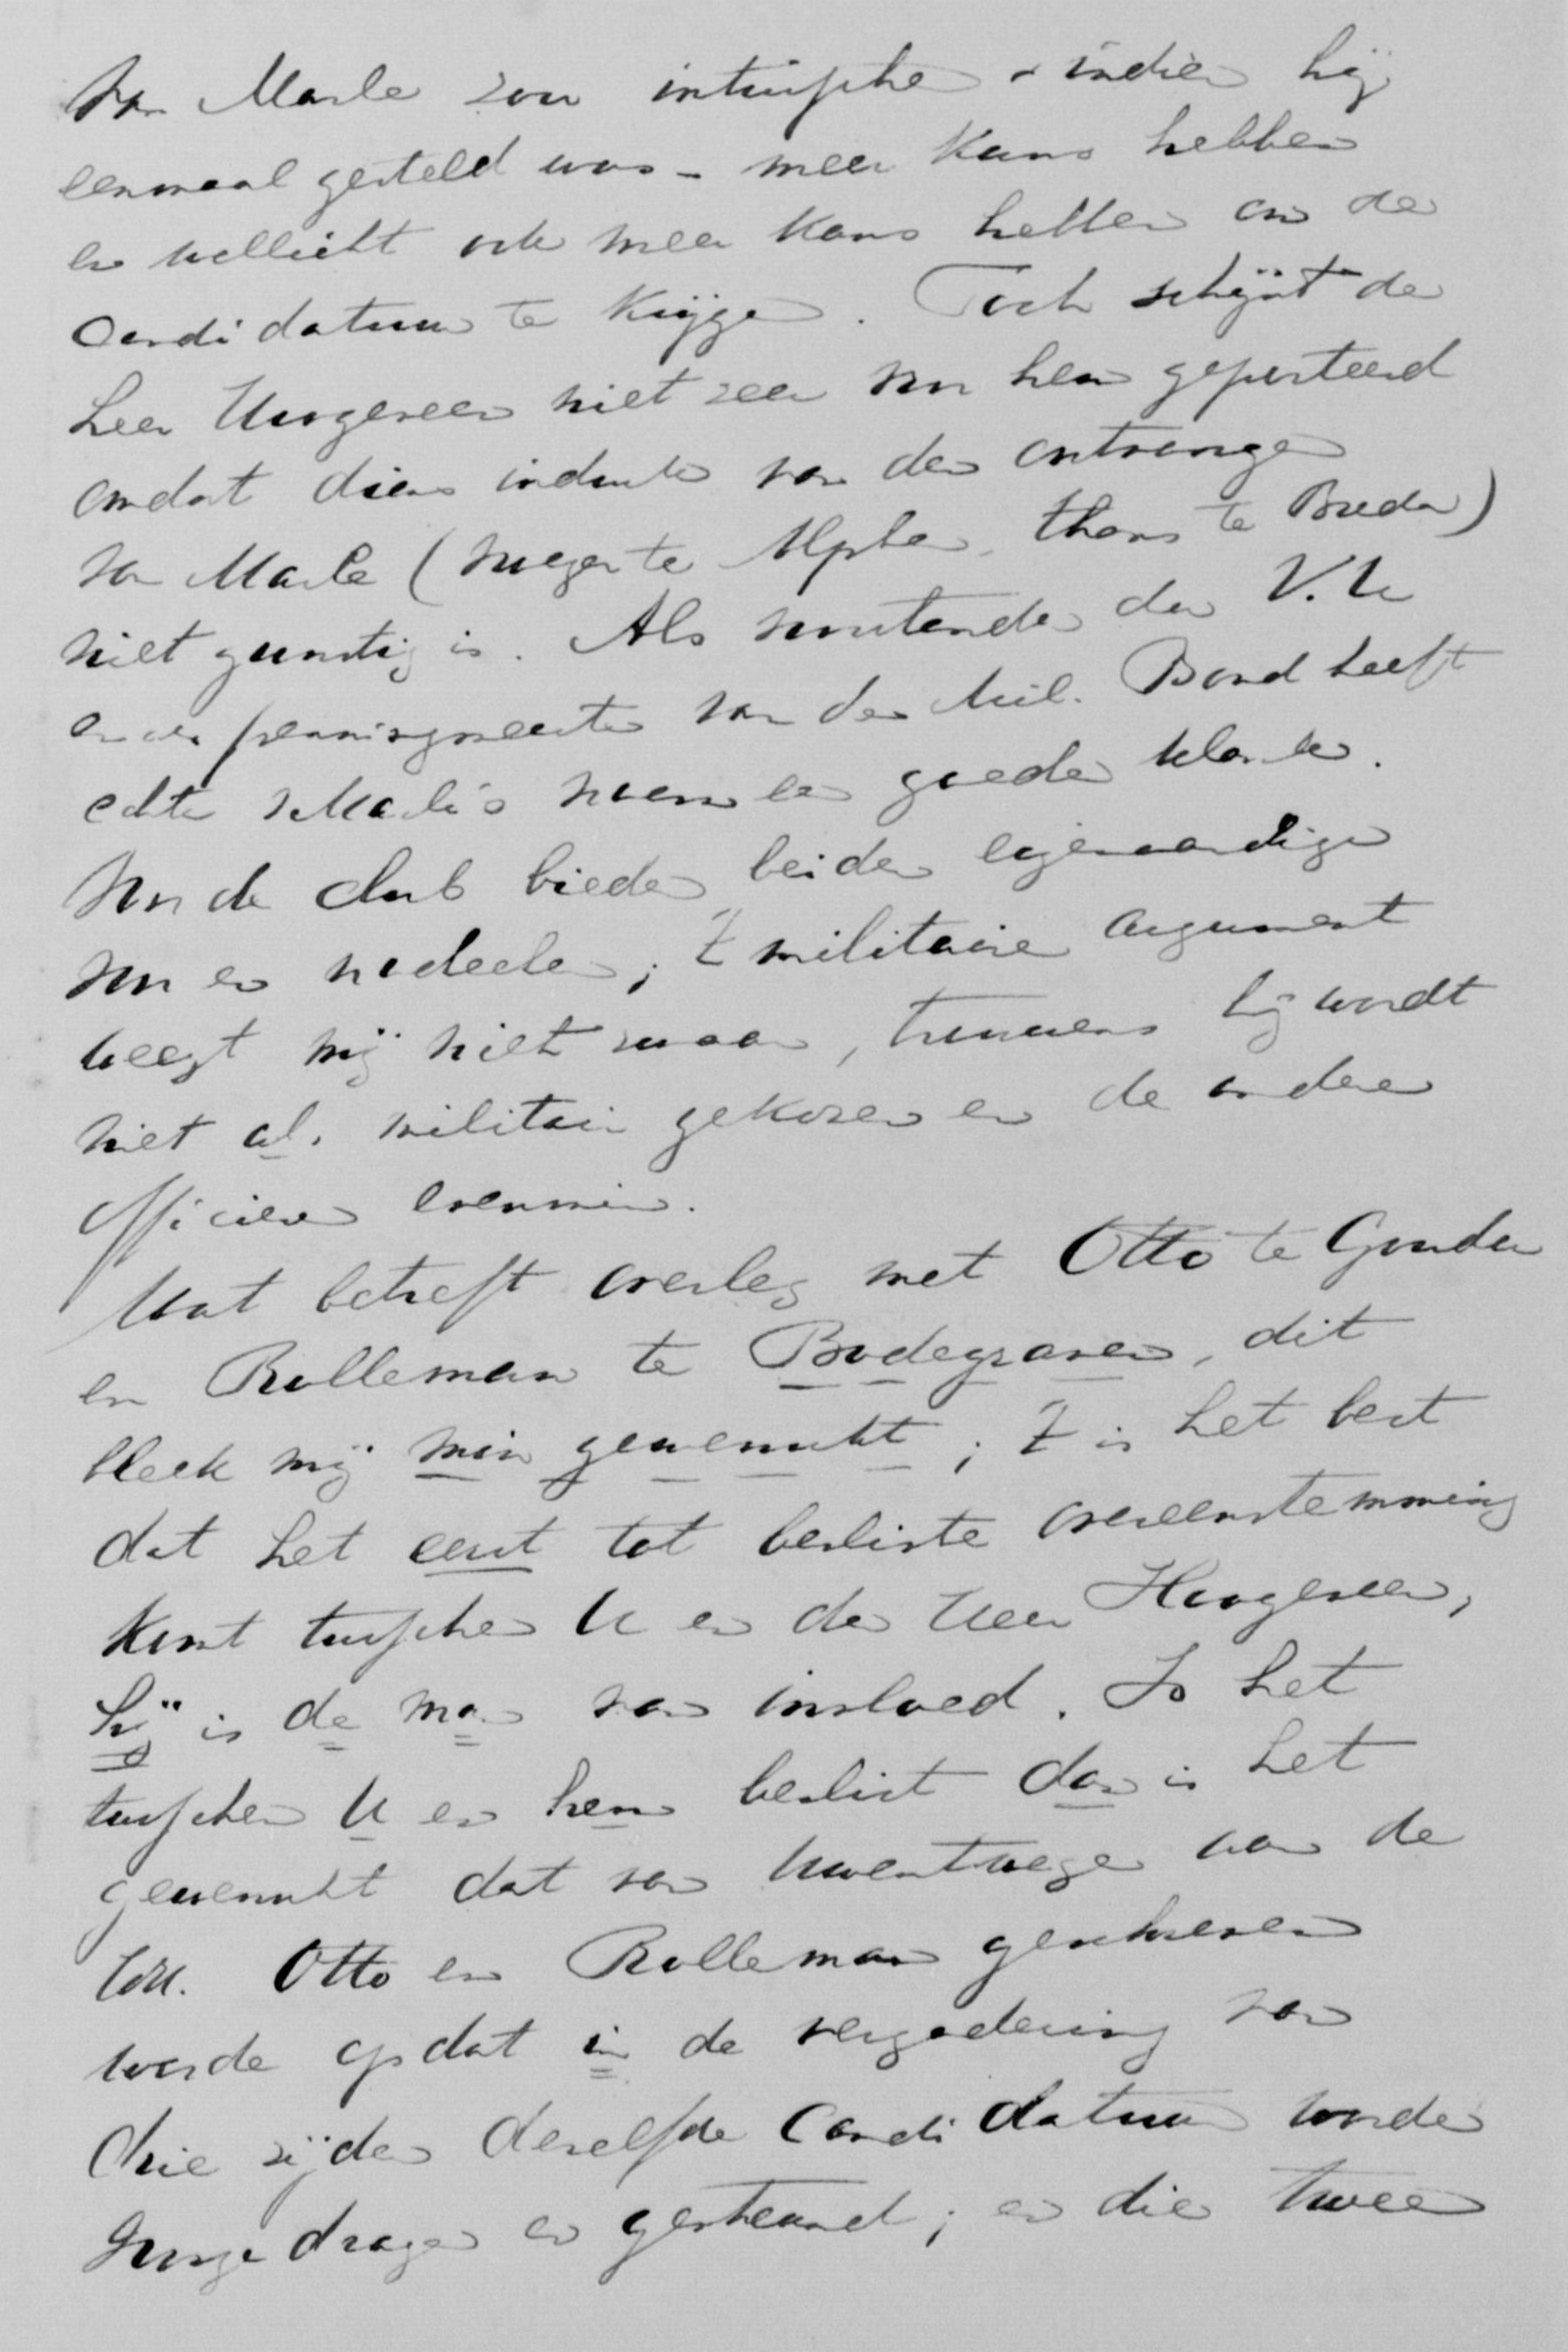 van Marle zou intusschen - indien hij
eenmaal gesteld was - meer kans hebben
en wellicht ook meer kans hebben om de
candidatuur te krijgen. Toch schijnt de
heer Hoogeveen niet zeer voor hem geporteerd
omdat diens indruk van den ontvanger
van Marle (vroeger te Alphen, thans te Breda)
niet gunstig is. Als voorstander der V.W.
en als penningmeester van den Mil. Bond heeft
echter v Marle's naam een goede klank.
Voor de club bieden beiden eigenaardige
voor en nadeelen; 't militaire argument
weegt mij niet zwaar, trouwens hij wordt
niet als militair gekozen en de andere
officieren evenmin.
Wat betreft overleg met Otto te Gouda
en Rolleman te Bodegraven, dit
bleek mij min gewenscht; 't is het best
dat het eerst tot besliste overeenstemming
komt tusschen U en den heer Hoogeveen,
hij is de man van invloed. Is het
tusschen U en hem beslist dan is het
gewenscht dat van Uwentwege aan de
HH. Otto en Rolleman geschreven
worde opdat in de vergadering van
drie zijden dezelfde Candidatuur worde
voorgedragen en gesteund; en die twee